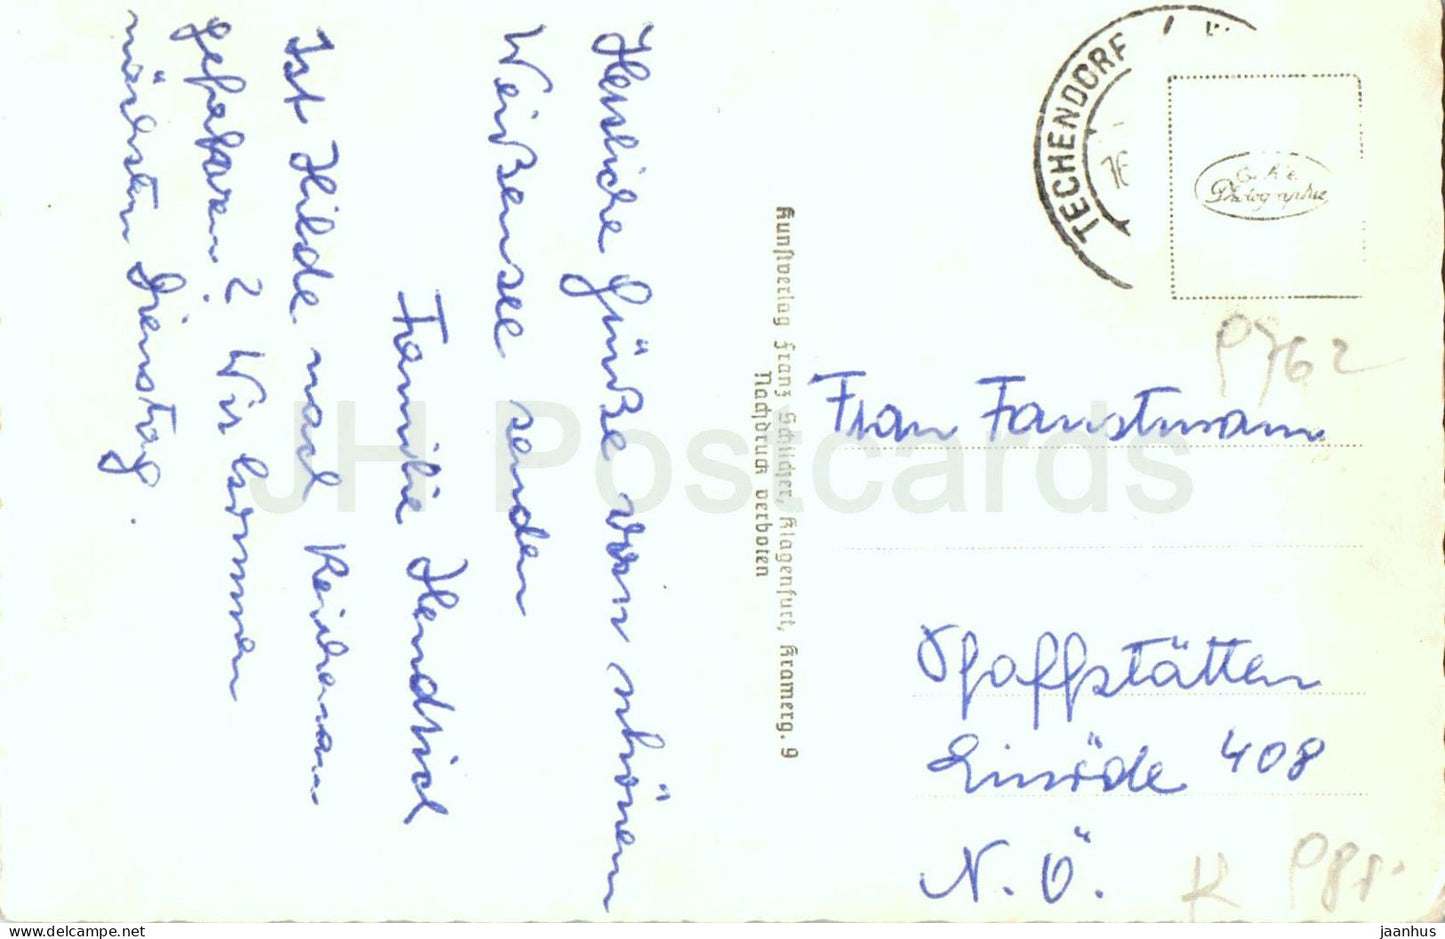 Herzliche Grüße vom schönen
Weißensee senden
Familie Hendrich
Ist Hilde nach Reichenau
gefahren? Wir kommen
nächsten Dienstag.
Kunstverlag Franz Schilcher, Klagenfurt, Kramerg. 9
Nachdruck verboten
TECHENDORF
16.
Echte
Photographie
P762
Frau Faustmann
Pfaffstätten
Einöde 408
N.Ö.
K P81.
JH Postcards
jaanhus